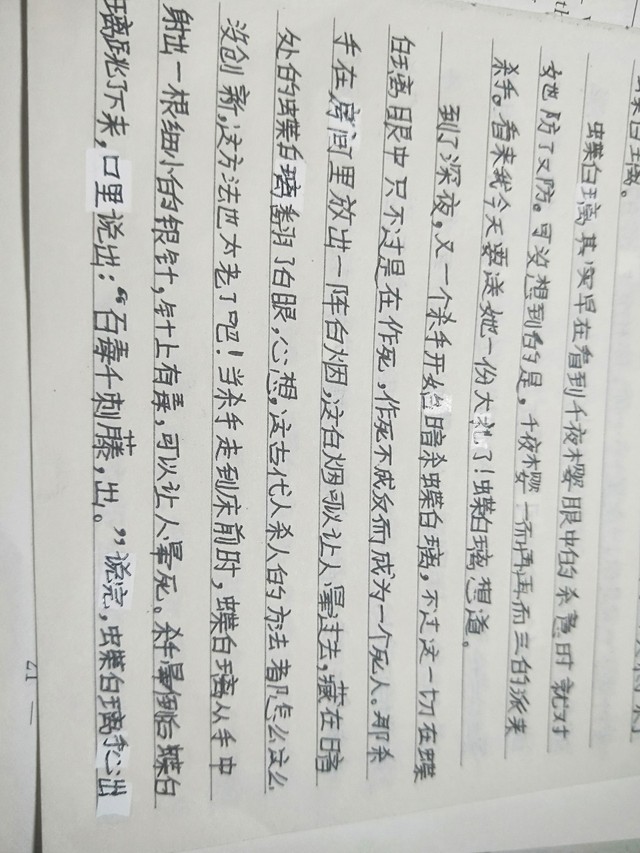 蝶白璃。
蝶白璃其实早在看到千夜樱眼中的杀意时就对
她防了又防。可没想到的是，千夜樱一而再再而三的派来
杀手。看来我今天要送她一份大礼了！蝶白璃想道。
到了深夜，又一个杀手开始暗杀蝶白璃，不过这一切在蝶
白璃眼中只不过是在作死，作死不成反而成为一个死人。那杀
手在房间里放出一阵白烟，这白烟可以让人晕过去，藏在暗
处的蝶白璃翻了白眼，心想，这古代人杀人的方法都怎么这么
没创新，这方法也太老了吧！当杀手走到床前时，蝶白璃从手中
射出一根细小的银针，针上有毒，可以让人晕死。杀手晕倒后蝶白
璃跳了下来，口里说出：“召毒千刺藤，出。”说完，蝶白璃手心出
17